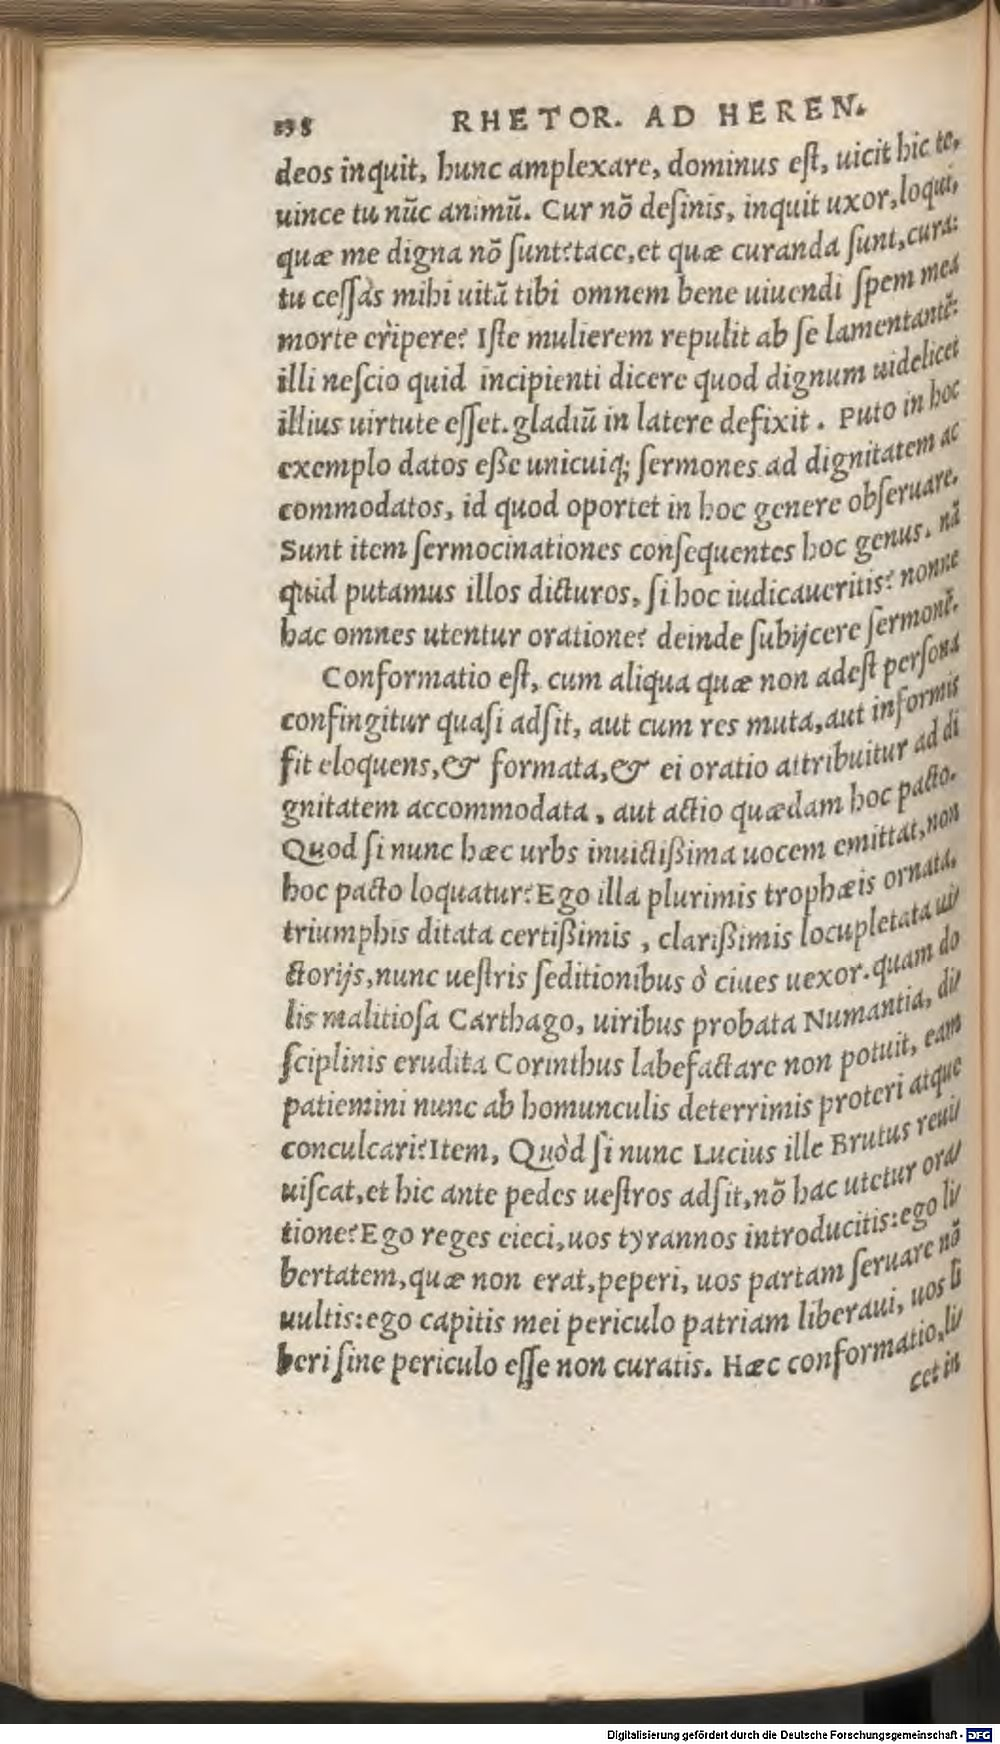 198 RHETOR. AD HEREN.
deos inquit, hunc amplexare, dominus eſt, uicit hic te,
uince tu nũc animũ. Cur nõ deſinis, inquit uxor, loqui,
quæ me digna nõ ſunt? tace, et quæ curanda ſunt, cura:
tu ceſſas mihi uitã tibi omnem bene uiuendi ſpem mea
morte eripere? Iſte mulierem repulit ab ſe lamentantẽ:
illi neſcio quid incipienti dicere quod dignum uidelicet
illius uirtute eſſet. gladiũ in latere defixit. Puto in hoc
exemplo datos eße unicuiq; ſermones ad dignitatem ac
commodatos, id quod oportet in hoc genere obſeruare.
Sunt item ſermocinationes conſequentes hoc genus. nã
quid putamus illos dicturos, ſi hoc iudicaueritis? nonne
hac omnes utentur oratione? deinde ſubijcere ſermonẽ.
Conformatio eſt, cum aliqua quæ non adeſt perſona
confingitur quaſi adſit, aut cum res muta, aut informis
fit eloquens, & formata, & ei oratio attribuitur ad di
gnitatem accommodata, aut actio quædam hoc pacto.
Quod ſi nunc hæc urbs inuictißima uocem emittat, non
hoc pacto loquatur? Ego illa plurimis trophæis ornata,
triumphis ditata certißimis, clarißimis locupletata ui/
ctorijs, nunc ueſtris ſeditionibus ò ciues uexor. quam do
lis malitioſa Carthago, uiribus probata Numantia, di/
ſciplinis erudita Corinthus labefactare non potuit, eam
patiemini nunc ab homunculis deterrimis proteri atque
conculcari? Item, Quòd ſi nunc Lucius ille Brutus reui/
uiſcat, et hic ante pedes ueſtros adſit, nõ hac utetur ora/
tione? Ego reges eieci, uos tyrannos introducitis: ego li/
bertatem, quæ non erat, peperi, uos partam ſeruare nõ
uultis: ego capitis mei periculo patriam liberaui, uos li
beri ſine periculo eſſe non curatis. Hæc conformatio, li/
cet in
Digitalisierung gefördert durch die Deutsche Forschungsgemeinschaft - DFG